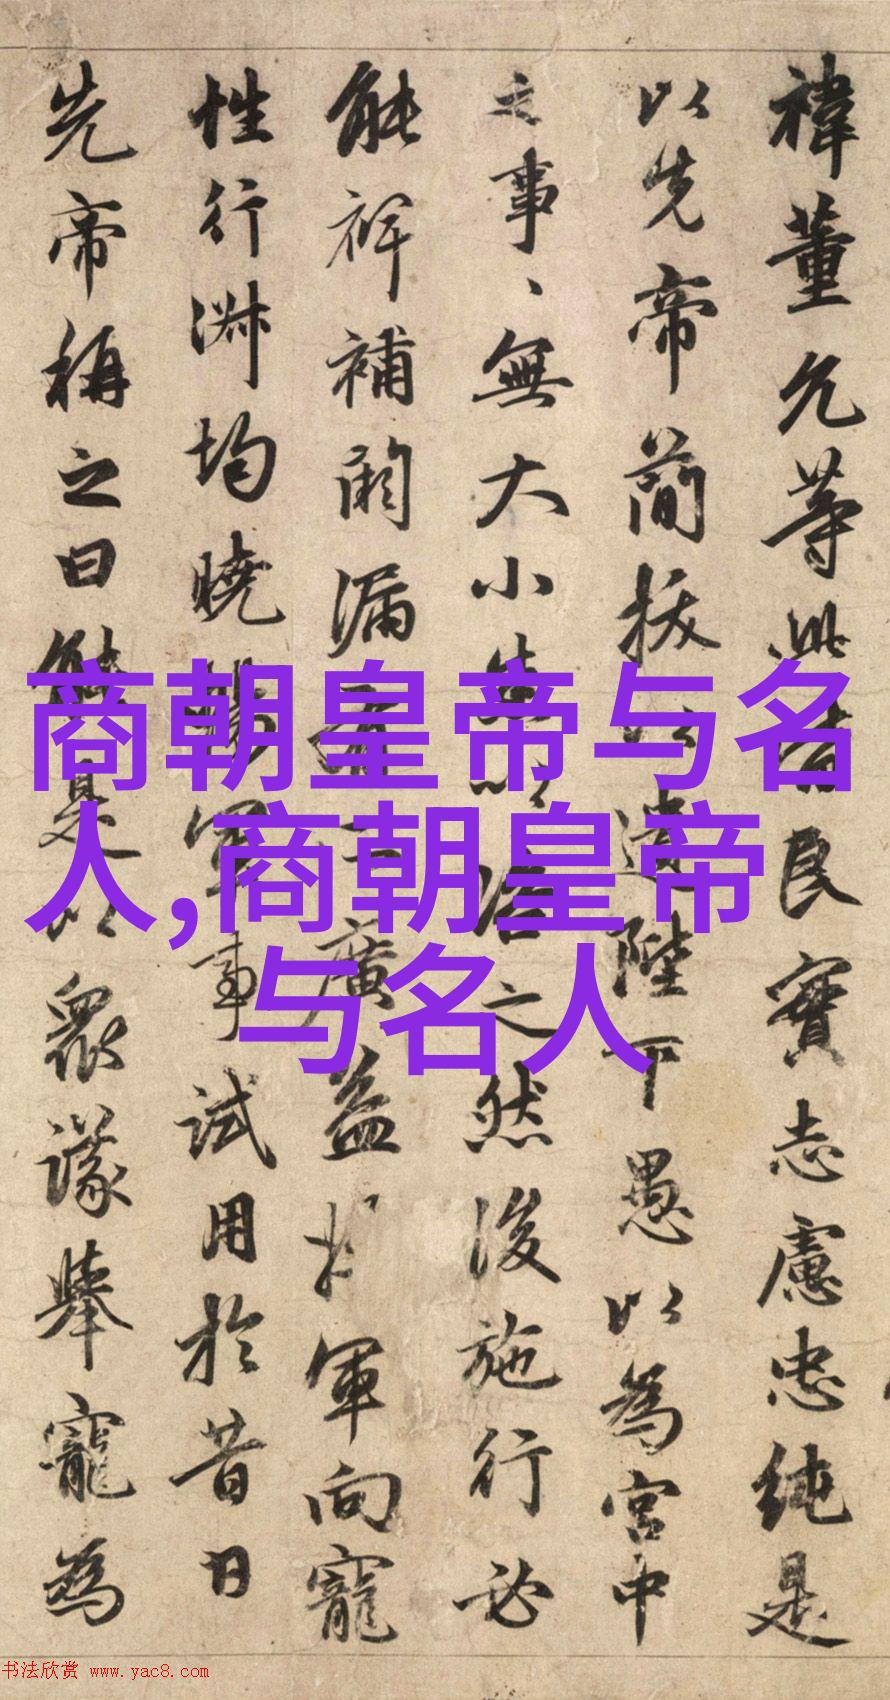 禕董允等此皆良實志慮忠純是
以先帝簡拔以遺陛下愚以為宮中
之事、無大小悉以咨之然後施行必
能裨補闕漏有所廣益将軍向寵
性行淑均曉暢軍事試用於昔日
先帝稱之曰能是以衆議舉寵為
商朝皇帝与名
人,商朝皇帝
与名人
书法欣赏 www.yac8.com